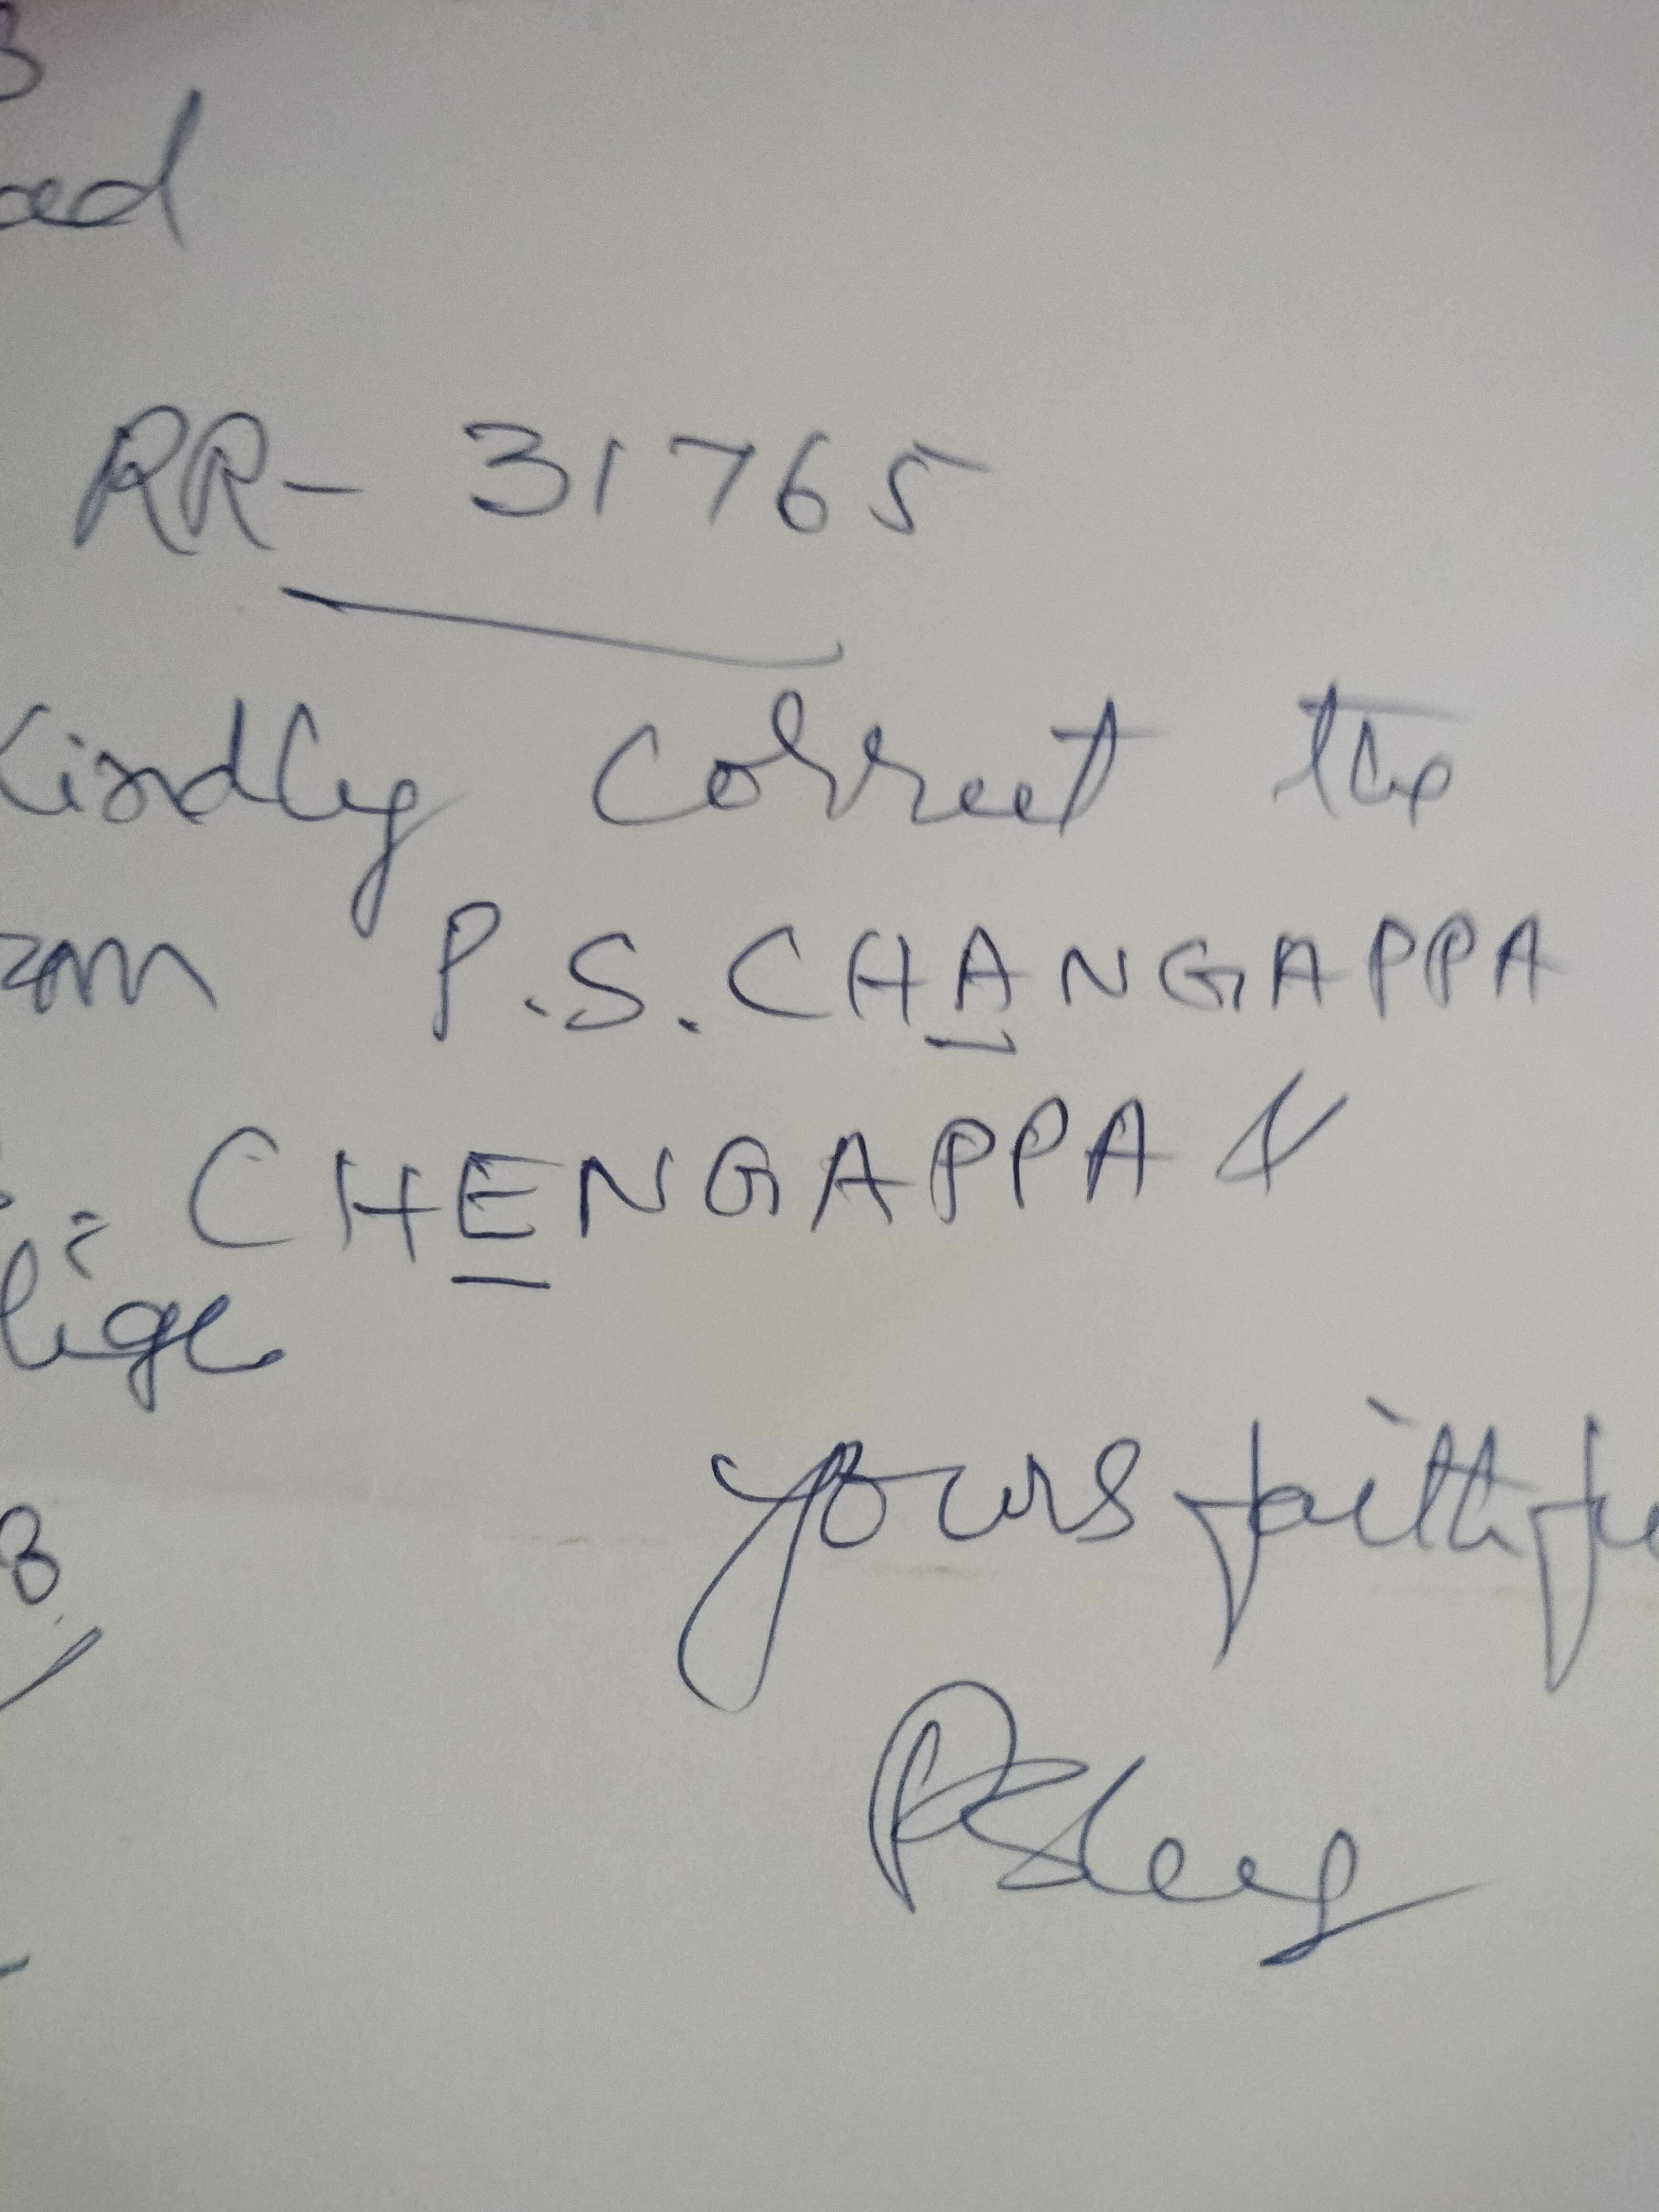 3
ad
RR- 31765
Kindly correct the
om P.S.CHANGAPPA
S. CHENGAPPA &
lige
yours faithfu
3